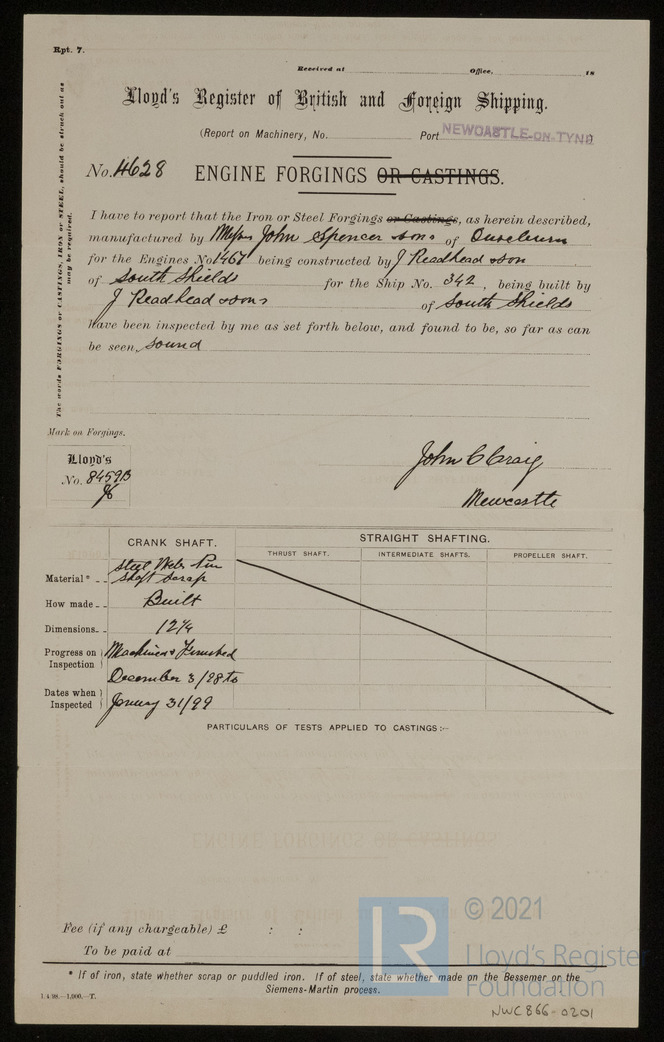 Rpt. 7.
Received at Office, 18
Lloyd's Register of British and Foreign Shipping.
(Report on Machinery, No. Port NEWCASTLE-ON-TYNE)
No. 4628 ENGINE FORGINGS OR CASTINGS.
The words FORGINGS or CASTINGS, IRON or STEEL, should be struck out as
may be required.
I have to report that the Iron or Steel Forgings or Castings, as herein described,
manufactured by Messrs John Spencer & Sons of Ouseburn
for the Engines No 1467 being constructed by J Readhead & Son
of South Shields for the Ship No. 342, being built by
J Readhead & Sons of South Shields
have been inspected by me as set forth below, and found to be, so far as can
be seen, sound
Mark on Forgings.
Lloyd's
No. 8459B
John C Craig
Newcastle
CRANK SHAFT. STRAIGHT SHAFTING.
THRUST SHAFT. INTERMEDIATE SHAFTS. PROPELLER SHAFT.
Material* Steel Webs Pin
Shaft Scrap
How made Built
Dimensions 12 1/4
Progress on Inspection Machined & Finished
December 3/98 to
Dates when Inspected January 31/99
PARTICULARS OF TESTS APPLIED TO CASTINGS:—
Fee (if any chargeable) £ : :
To be paid at
* If of iron, state whether scrap or puddled iron. If of steel, state whether made on the Bessemer or the
Siemens-Martin process.
1.4.98.—1,000.—T.
LR © 2021
Lloyd's Register
Foundation
NWC866-0201